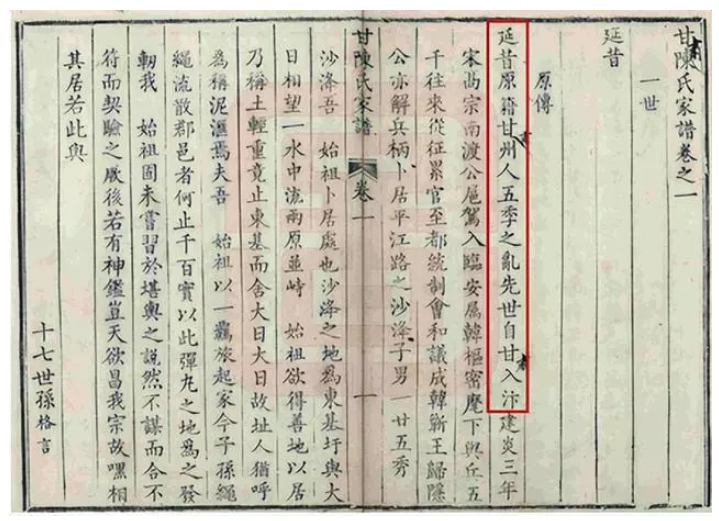 甘陳氏家譜卷之一
一世
延昔
原傳
延昔原籍甘州人五季之亂先世自甘入汴建炎三年
宋高宗南渡公扈駕入臨安属韓樞密麾下與丘五
千往來從征累官至都統制會和議成韓蘄王歸隱
公亦解兵柄卜居平江路之沙洚子男一廿五秀
甘陳氏家譜 卷一 一
沙洚吾 始祖卜居處也沙洚之地爲東基圩與大
日相望一水中流兩原並峙 始祖欲得善地以居
乃稱土輕重竟止東基而舍大日大日故址人猶呼
爲稱泥滙焉夫吾 始祖以一羈旅起家今子孫繩
繩流散郡邑者何止千百實以此彈丸之地爲之發
軔我 始祖固未嘗習於堪輿之説然不謀而合不
符而契驗之厥後若有神鑑豈天欲昌我宗故嘿相
其居若此與
十七世孫格言